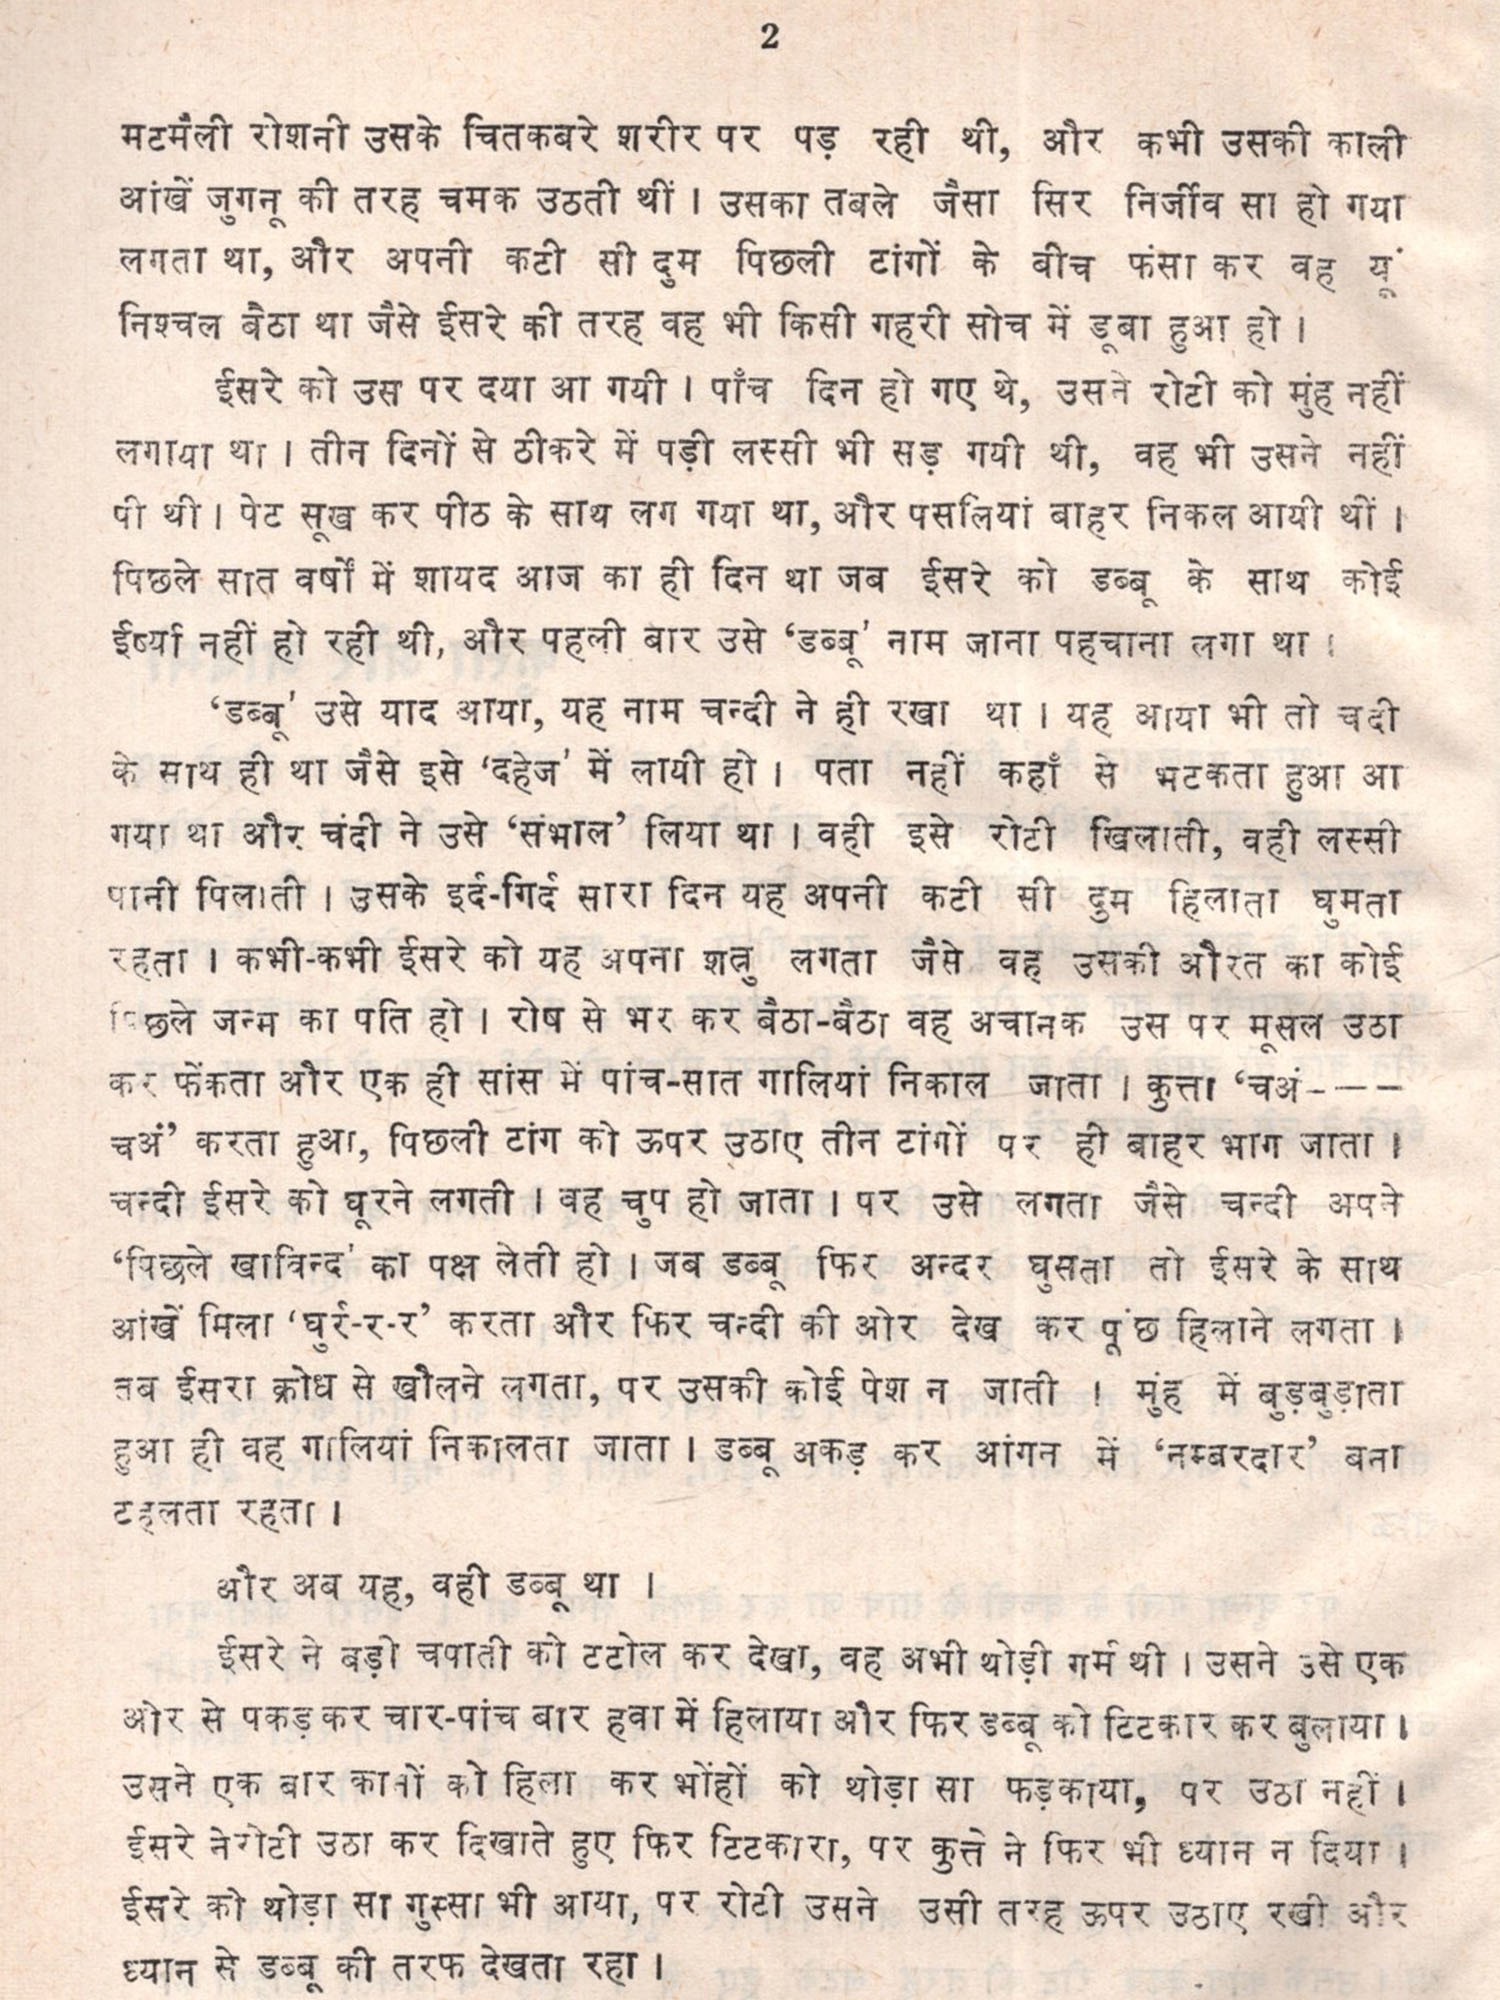 2
मटमैली रोशनी उसके चितकबरे शरीर पर पड़ रही थी, और कभी उसकी काली
आंखें जुगनू की तरह चमक उठती थीं। उसका तबले जैसा सिर निर्जीव सा हो गया
लगता था, और अपनी कटी सी दुम पिछली टांगों के बीच फंसा कर वह यूं
निश्चल बैठा था जैसे ईसरे की तरह वह भी किसी गहरी सोच में डूबा हुआ हो।
ईसरे को उस पर दया आ गयी। पाँच दिन हो गए थे, उसने रोटी को मुंह नहीं
लगाया था। तीन दिनों से ठीकरे में पड़ी लस्सी भी सड़ गयी थी, वह भी उसने नहीं
पी थी। पेट सूख कर पीठ के साथ लग गया था, और पसलियां बाहर निकल आयी थीं।
पिछले सात वर्षों में शायद आज का ही दिन था जब ईसरे को डब्बू के साथ कोई
ईर्ष्या नहीं हो रही थी, और पहली बार उसे ‘डब्बू’ नाम जाना पहचाना लगा था।
‘डब्बू’ उसे याद आया, यह नाम चन्दी ने ही रखा था। यह आया भी तो चदी
के साथ ही था जैसे इसे ‘दहेज’ में लायी हो। पता नहीं कहाँ से भटकता हुआ आ
गया था और चंदी ने उसे ‘संभाल’ लिया था। वही इसे रोटी खिलाती, वही लस्सी
पानी पिलाती। उसके इर्द-गिर्द सारा दिन यह अपनी कटी सी दुम हिलाता घुमता
रहता। कभी-कभी ईसरे को यह अपना शत्रु लगता जैसे वह उसकी औरत का कोई
पिछले जन्म का पति हो। रोष से भर कर बैठा-बैठा वह अचानक उस पर मूसल उठा
कर फेंकता और एक ही सांस में पांच-सात गालियां निकाल जाता। कुत्ता ‘चअं----
चअं’ करता हुआ, पिछली टांग को ऊपर उठाए तीन टांगों पर ही बाहर भाग जाता।
चन्दी ईसरे को घूरने लगती। वह चुप हो जाता। पर उसे लगता जैसे चन्दी अपने
‘पिछले खाविन्द’ का पक्ष लेती हो। जब डब्बू फिर अन्दर घुसता तो ईसरे के साथ
आंखें मिला ‘घुर्र-र-र’ करता और फिर चन्दी की ओर देख कर पूंछ हिलाने लगता।
तब ईसरा क्रोध से खौलने लगता, पर उसकी कोई पेश न जाती। मुंह में बुड़बुड़ाता
हुआ ही वह गालियां निकालता जाता। डब्बू अकड़ कर आंगन में ‘नम्बरदार’ बना
टहलता रहता।
और अब यह, वही डब्बू था।
ईसरे ने बड़ी चपाती को टटोल कर देखा, वह अभी थोड़ी गर्म थी। उसने उसे एक
ओर से पकड़ कर चार-पांच बार हवा में हिलाया और फिर डब्बू को टिटकार कर बुलाया।
उसने एक बार कानों को हिला कर भोंहों को थोड़ा सा फड़काया, पर उठा नहीं।
ईसरे ने रोटी उठा कर दिखाते हुए फिर टिटकारा, पर कुत्ते ने फिर भी ध्यान न दिया।
ईसरे को थोड़ा सा गुस्सा भी आया, पर रोटी उसने उसी तरह ऊपर उठाए रखी और
ध्यान से डब्बू की तरफ देखता रहा।